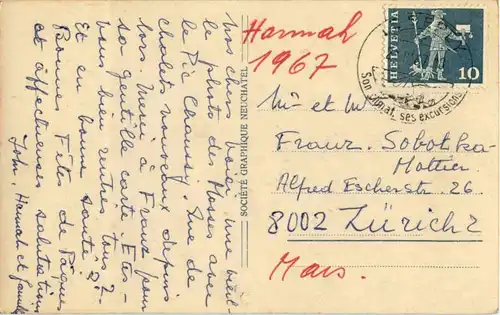 Hannah
1967
HELVETIA
10
Son climat, ses excursions
Nos chers voici une vieil-
le photo des Mosses avec
le Pic Chaussy. Que de
chalets nouveaux depuis
lors. Merci à Franz pour
sa gentille carte. Êtes-
vous bien rentrés tous 2
Et en bonne santé?
Bonnes Fêtes de Pâques
et affectueuses salutations
John, Hannah et famille
SOCIÉTÉ GRAPHIQUE NEUCHÂTEL
Mr et Mme
Franz Sobotka-
Mottier
Alfred Escherstr. 26
8002 Zürich 2
Mars.